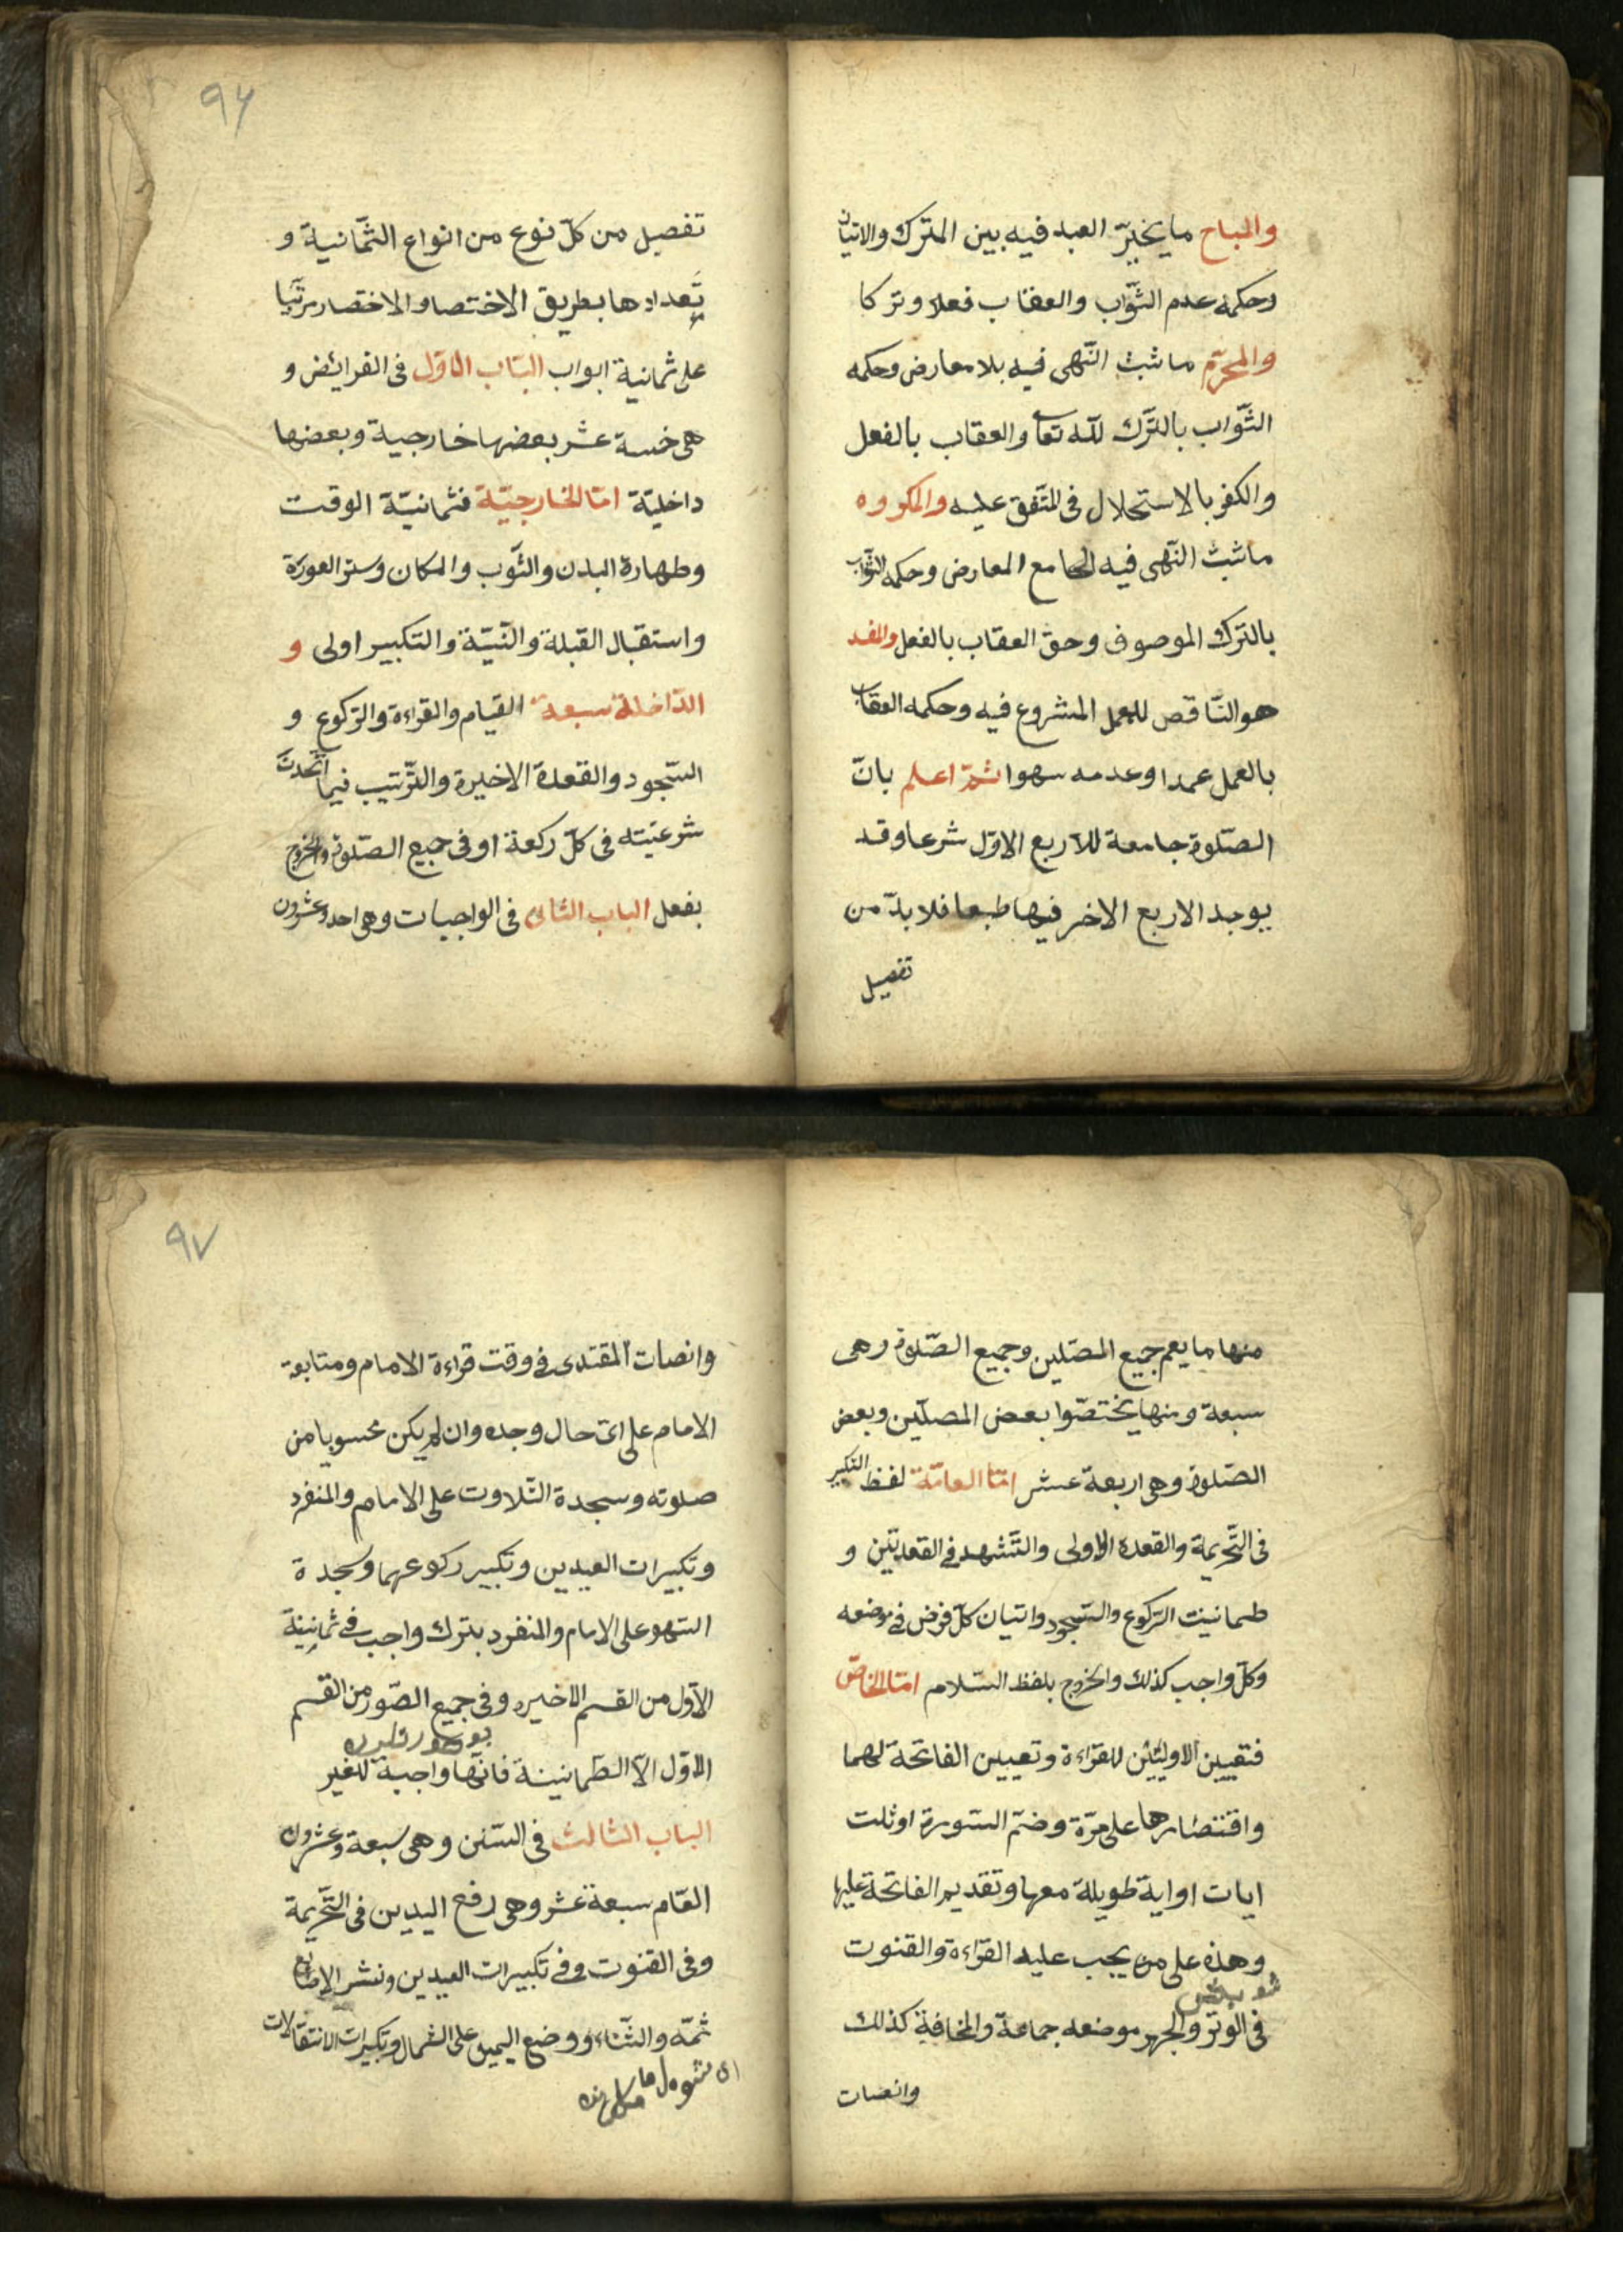 والمباح ما يخيّر العبد فيه بين المترك والاتيان
وحكمه عدم الثّواب والعقاب فعلا وتركا
والمحرّم ما ثبت النّهى فيه بلا معارض وحكمه
الثّواب بالتّرك لله تعا والعقاب بالفعل
والكفر بالاستحلال فى المتّفق عليه والمكروه
ما ثبت النّهى فيه مع المعارض وحكمه الثّواب
بالترك الموصوف وحق العقاب بالفعل والمفسد
هو النّاقص للعمل المشروع فيه وحكمه العقاب
بالعمل عمدا وعدمه سهوا ثمّ اعلم بانّ
الصّلوة جامعة للاربع الاوّل شرعا وقد
يوجد الاربع الاخر فيها طبعا فلا بدّ من
تفصيل
٩٦
تفصيل من كلّ نوع من انواع الثّمانية و
تعدادها بطريق الاختصار مرتّبا
على ثمانية ابواب الباب الاوّل فى الفرائض و
هى خمسة عشر بعضها خارجية وبعضها
داخليّة امّا الخارجيّة فثمانيّة الوقت
وطهارة البدن والثّوب والمكان وستر العورة
واستقبال القبلة والنّيّة والتكبير اولى و
الدّاخلة سبعة القيام والقراءة والرّكوع و
السّجود والقعدة الاخيرة والتّرتيب فيما اتّحدت
شرعيّته فى كلّ ركعة او فى جميع الصّلوة والخروج
بفعل الباب الثانى فى الواجبات وهى احد وعشرون
منها ما يعم جميع المصلين وجميع الصّلوة وهى
سبعة ومنها يختصّوا بعض المصلّين وبعض
الصّلوة وهى اربعة عشر امّا العامّة لفظ التكبير
فى التّحريمة والقعدة الاولى والتّشهد فى القعدتين و
طمانينت الرّكوع والسّجود واتيان كلّ فرض فى موضعه
وكلّ واجب كذلك والخروج بلفظ السّلام امّا الخاصّ
فتعيين الاوليين للقراءة وتعيين الفاتحة لهما
واقتصارها على مرّة وضمّ السّورة او ثلث
ايات او اية طويلة معها وتقديم الفاتحة عليها
وهذه على من يجب عليه القراءة والقنوت
فى الوتر والجهر موضعه جماعة والمخافة كذلك
وانصات
٩٧
وانصات المقتدى فى وقت قراءة الامام ومتابعة
الامام على اىّ حال وجده وان لم يكن محسوبا من
صلوته وسجدة التّلاوت على الامام والمنفرد
وتكبيرات العيدين وتكبير ركوعهما وسجدة
السّهو على الامام والمنفرد بترك واجب فى ثمانينة
الاوّل من القسم الاخير وفى جميع الصّور من القسم
الاوّل الّا الطّمانينة فانّها واجبة للغير
الباب الثالث فى السّنن وهى سبعة وعشرون
العّام سبعة عشر وهى رفع اليدين فى التّحريمة
وفى القنوت وفى تكبيرات العيدين ونشر الاصابع
ثمّه والثّناء ووضع اليمين على الشمال وتكبيرات الانتقالات